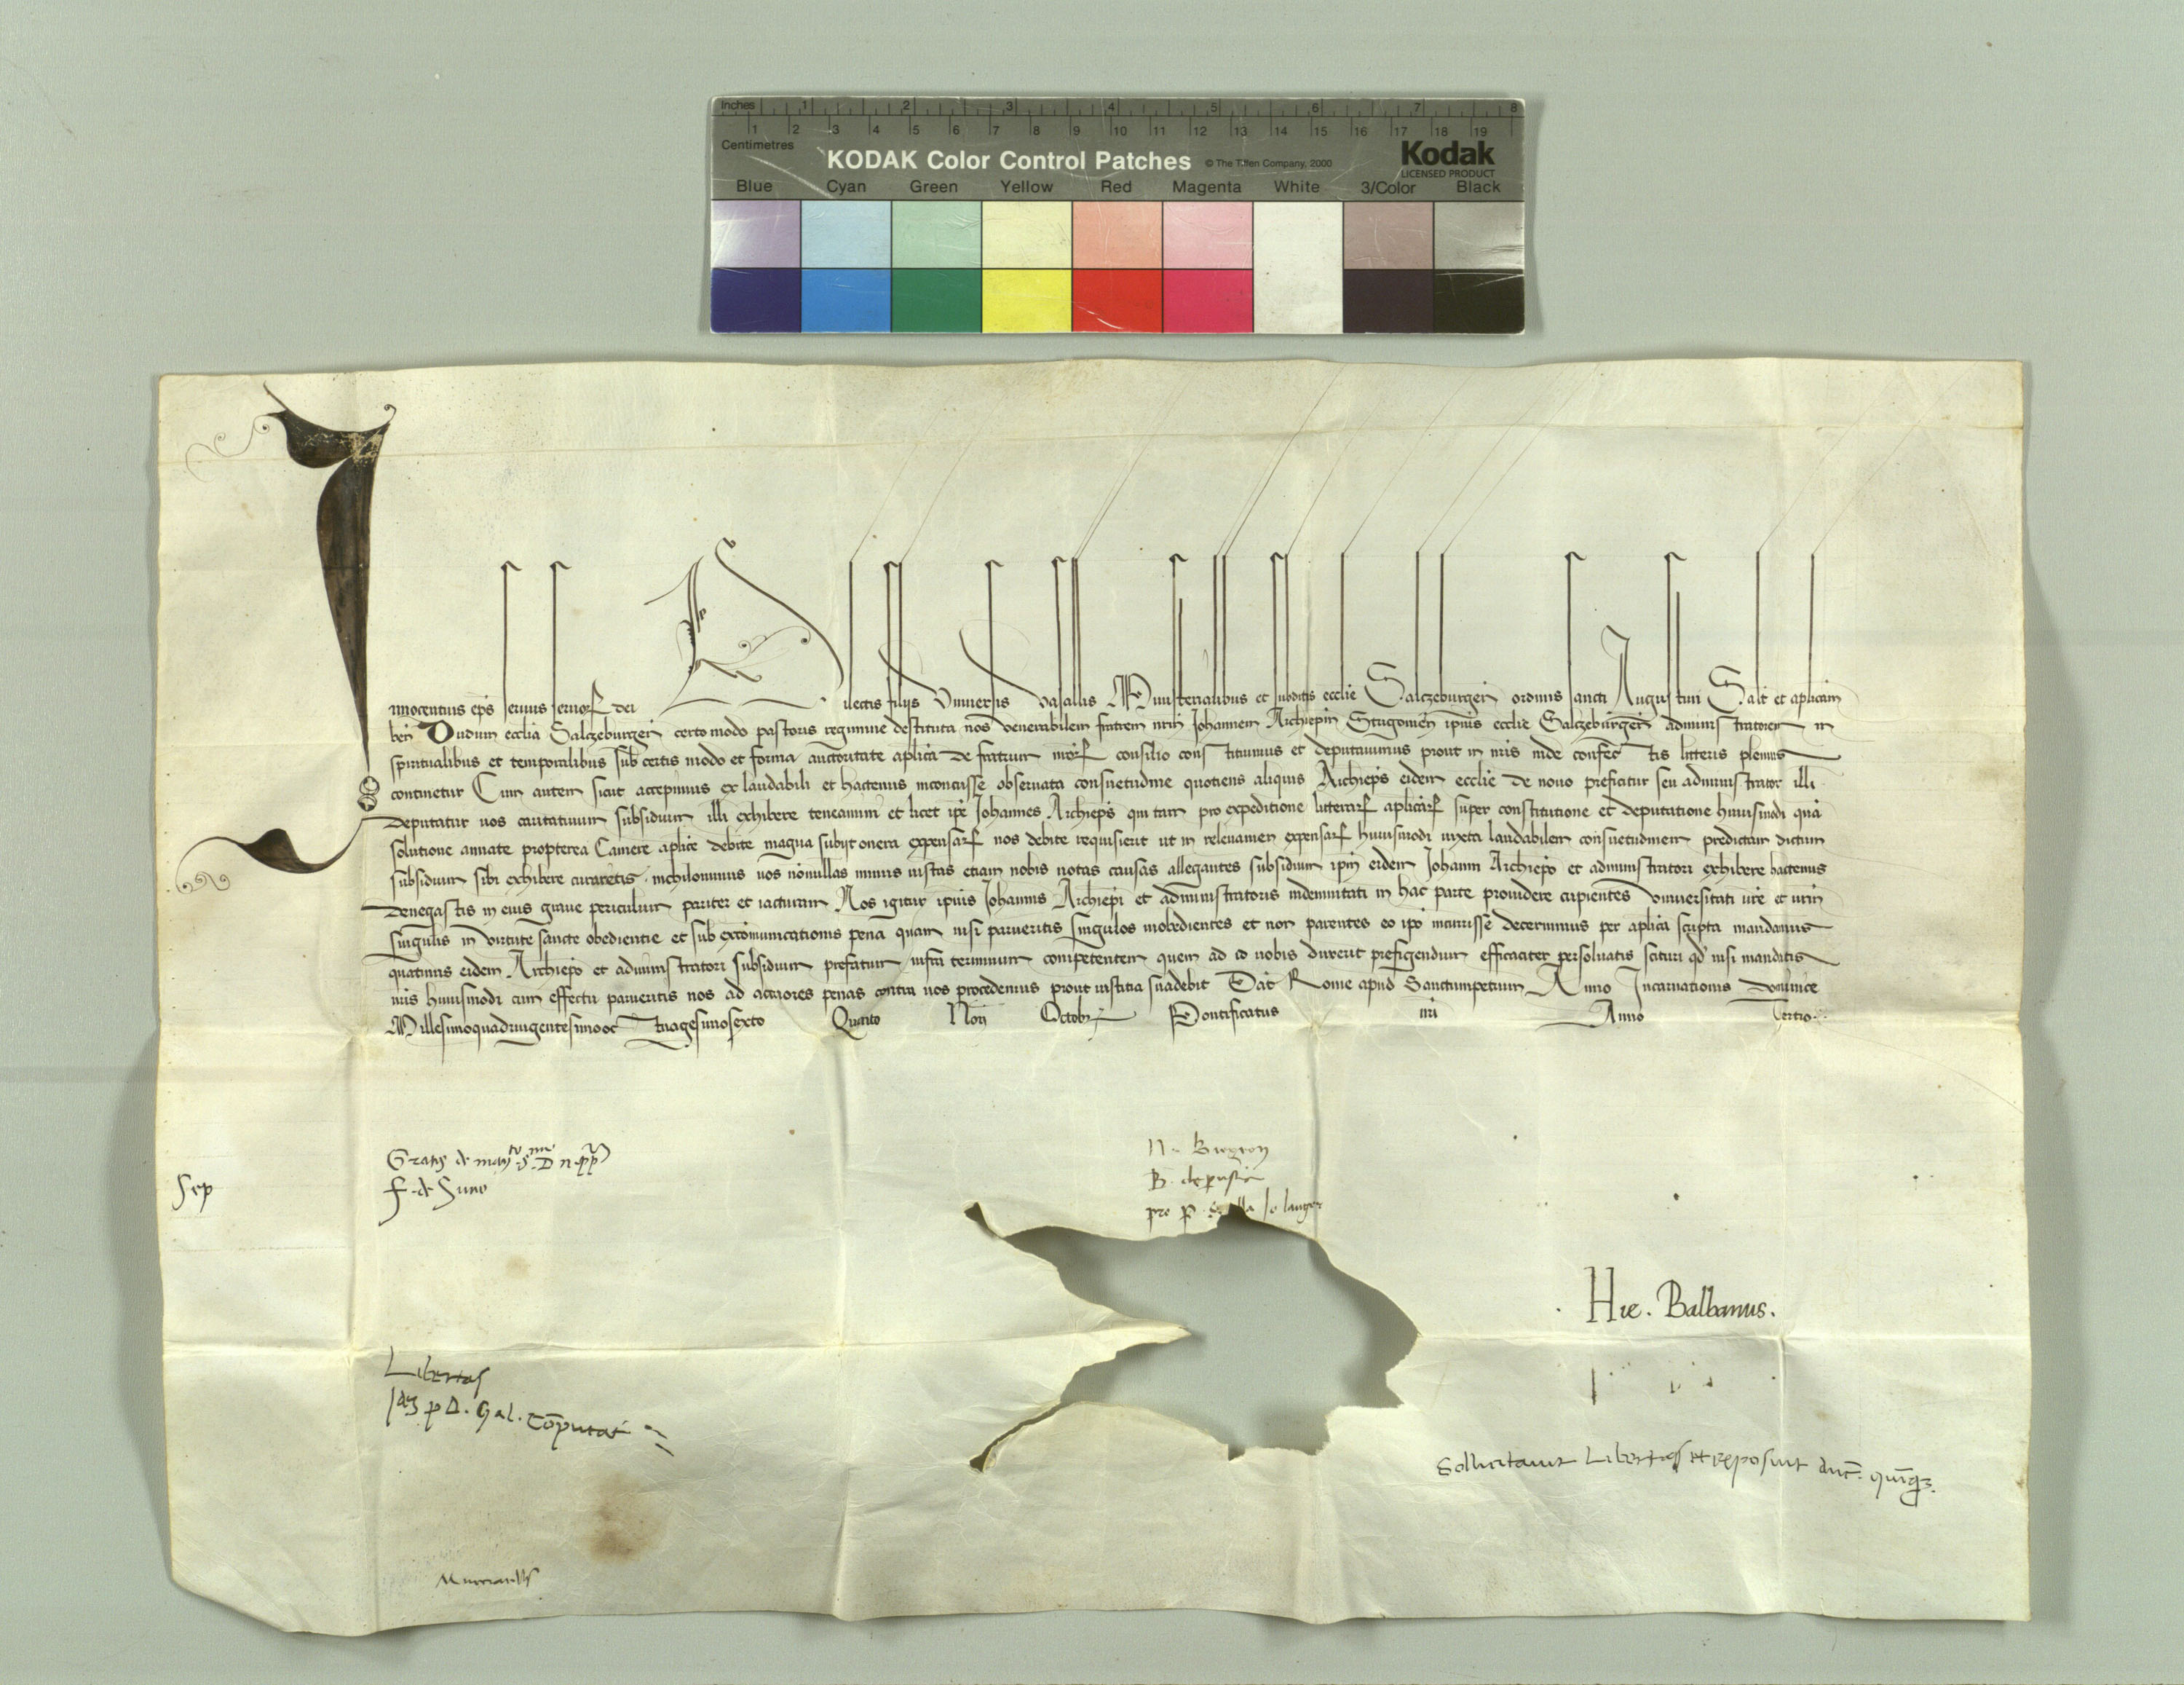 Inches 1 2 3 4 5 6 7 8
1 2 3 4 5 6 7 8 9 10 11 12 13 14 15 16 17 18 19
Centimetres
KODAK Color Control Patches © The Tiffen Company, 2000 Kodak
LICENSED PRODUCT
Blue Cyan Green Yellow Red Magenta White 3/Color Black
Innocentius eps servus servoꝝ dei Dilectis filijs Universis vasallis Ministerialibus et subditis ecclie Salczeburgeñ ordinis sancti Augustini Salt et aplicam
beñ Dudum ecclia Salczeburgeñ certo modo pastoris regimine destituta nos venerabilem fratrem nrm Johannem Archiepm Strigonieñ ipius ecclie Salczeburgeñ administratorem in
spiritualibus et temporalibus sub certis modo et forma auctoritate aplica de fratrum nroꝝ consilio constituimus et deputavimus prout in nris inde confectis litteris plenius
continetur Cum autem sicut accepimus ex laudabili et hactenus inconcusse observata consuetudine quotiens aliquis Archieps eidem ecclie de novo preficitur seu administrator illi
deputatur vos caritativum subsidium illi exhibere teneamini et licet ipe Johannes Archieps qui tam pro expeditione litteraꝝ aplicaꝝ super constitutione et deputatione huiusmodi qua
solutione annate propterea Camere aplice debite magna subijt onera expensaꝝ vos debite requisierit ut in relevamen expensaꝝ huiusmodi iuxta laudabilem consuetudinem predictam dictum
subsidium sibi exhibere curaretis nichilominus vos nonnullas minus iustas etiam nobis notas causas allegantes subsidium ipm eidem Johanni Archiepo et administratori exhibere hactenus
denegastis in eius grave periculum pariter et iacturam Nos igitur ipius Johannis Archiepi et administratoris indemnitati in hac parte providere cupientes universitati vre et vrm
singulis in virtute sancte obedientie et sub excomunicationis pena quam nisi parueritis singulos inobedientes et non parentes eo ipo incurrisse decernimus per aplica scripta mandamus
quatinus eidem Archiepo et administratori subsidium prefatum infra terminum competentem quem ad id vobis duxerit prefigendum efficaciter persolvatis scituri qd nisi mandatis
nris huiusmodi cum effectu parueritis nos ad acriores penas contra vos procedemus prout iustitia suadebit Dat Rome apud Sanctumpetrum Anno Incarnationis dominice
Millesimoquadringentesimooctuagesimosexto Quinto Noñ Octobr Pontificatus nri Anno Tertio
Gratis de manto s. D n pp
F. de Suno
Sep
N. Bregeon
B. de perusio
pro P. la Jo langer
Hie. Balbanus.
Libertas
Idꝫ p D. Gal. Computat
Sollicitavit Libertas et reposuit duc. quinqꝫ